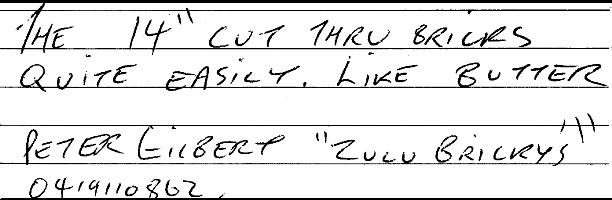 THE 14" CUT THRU BRICKS
QUITE EASILY. LIKE BUTTER
PETER GILBERT "ZULU BRICKY'S"
0419110862.